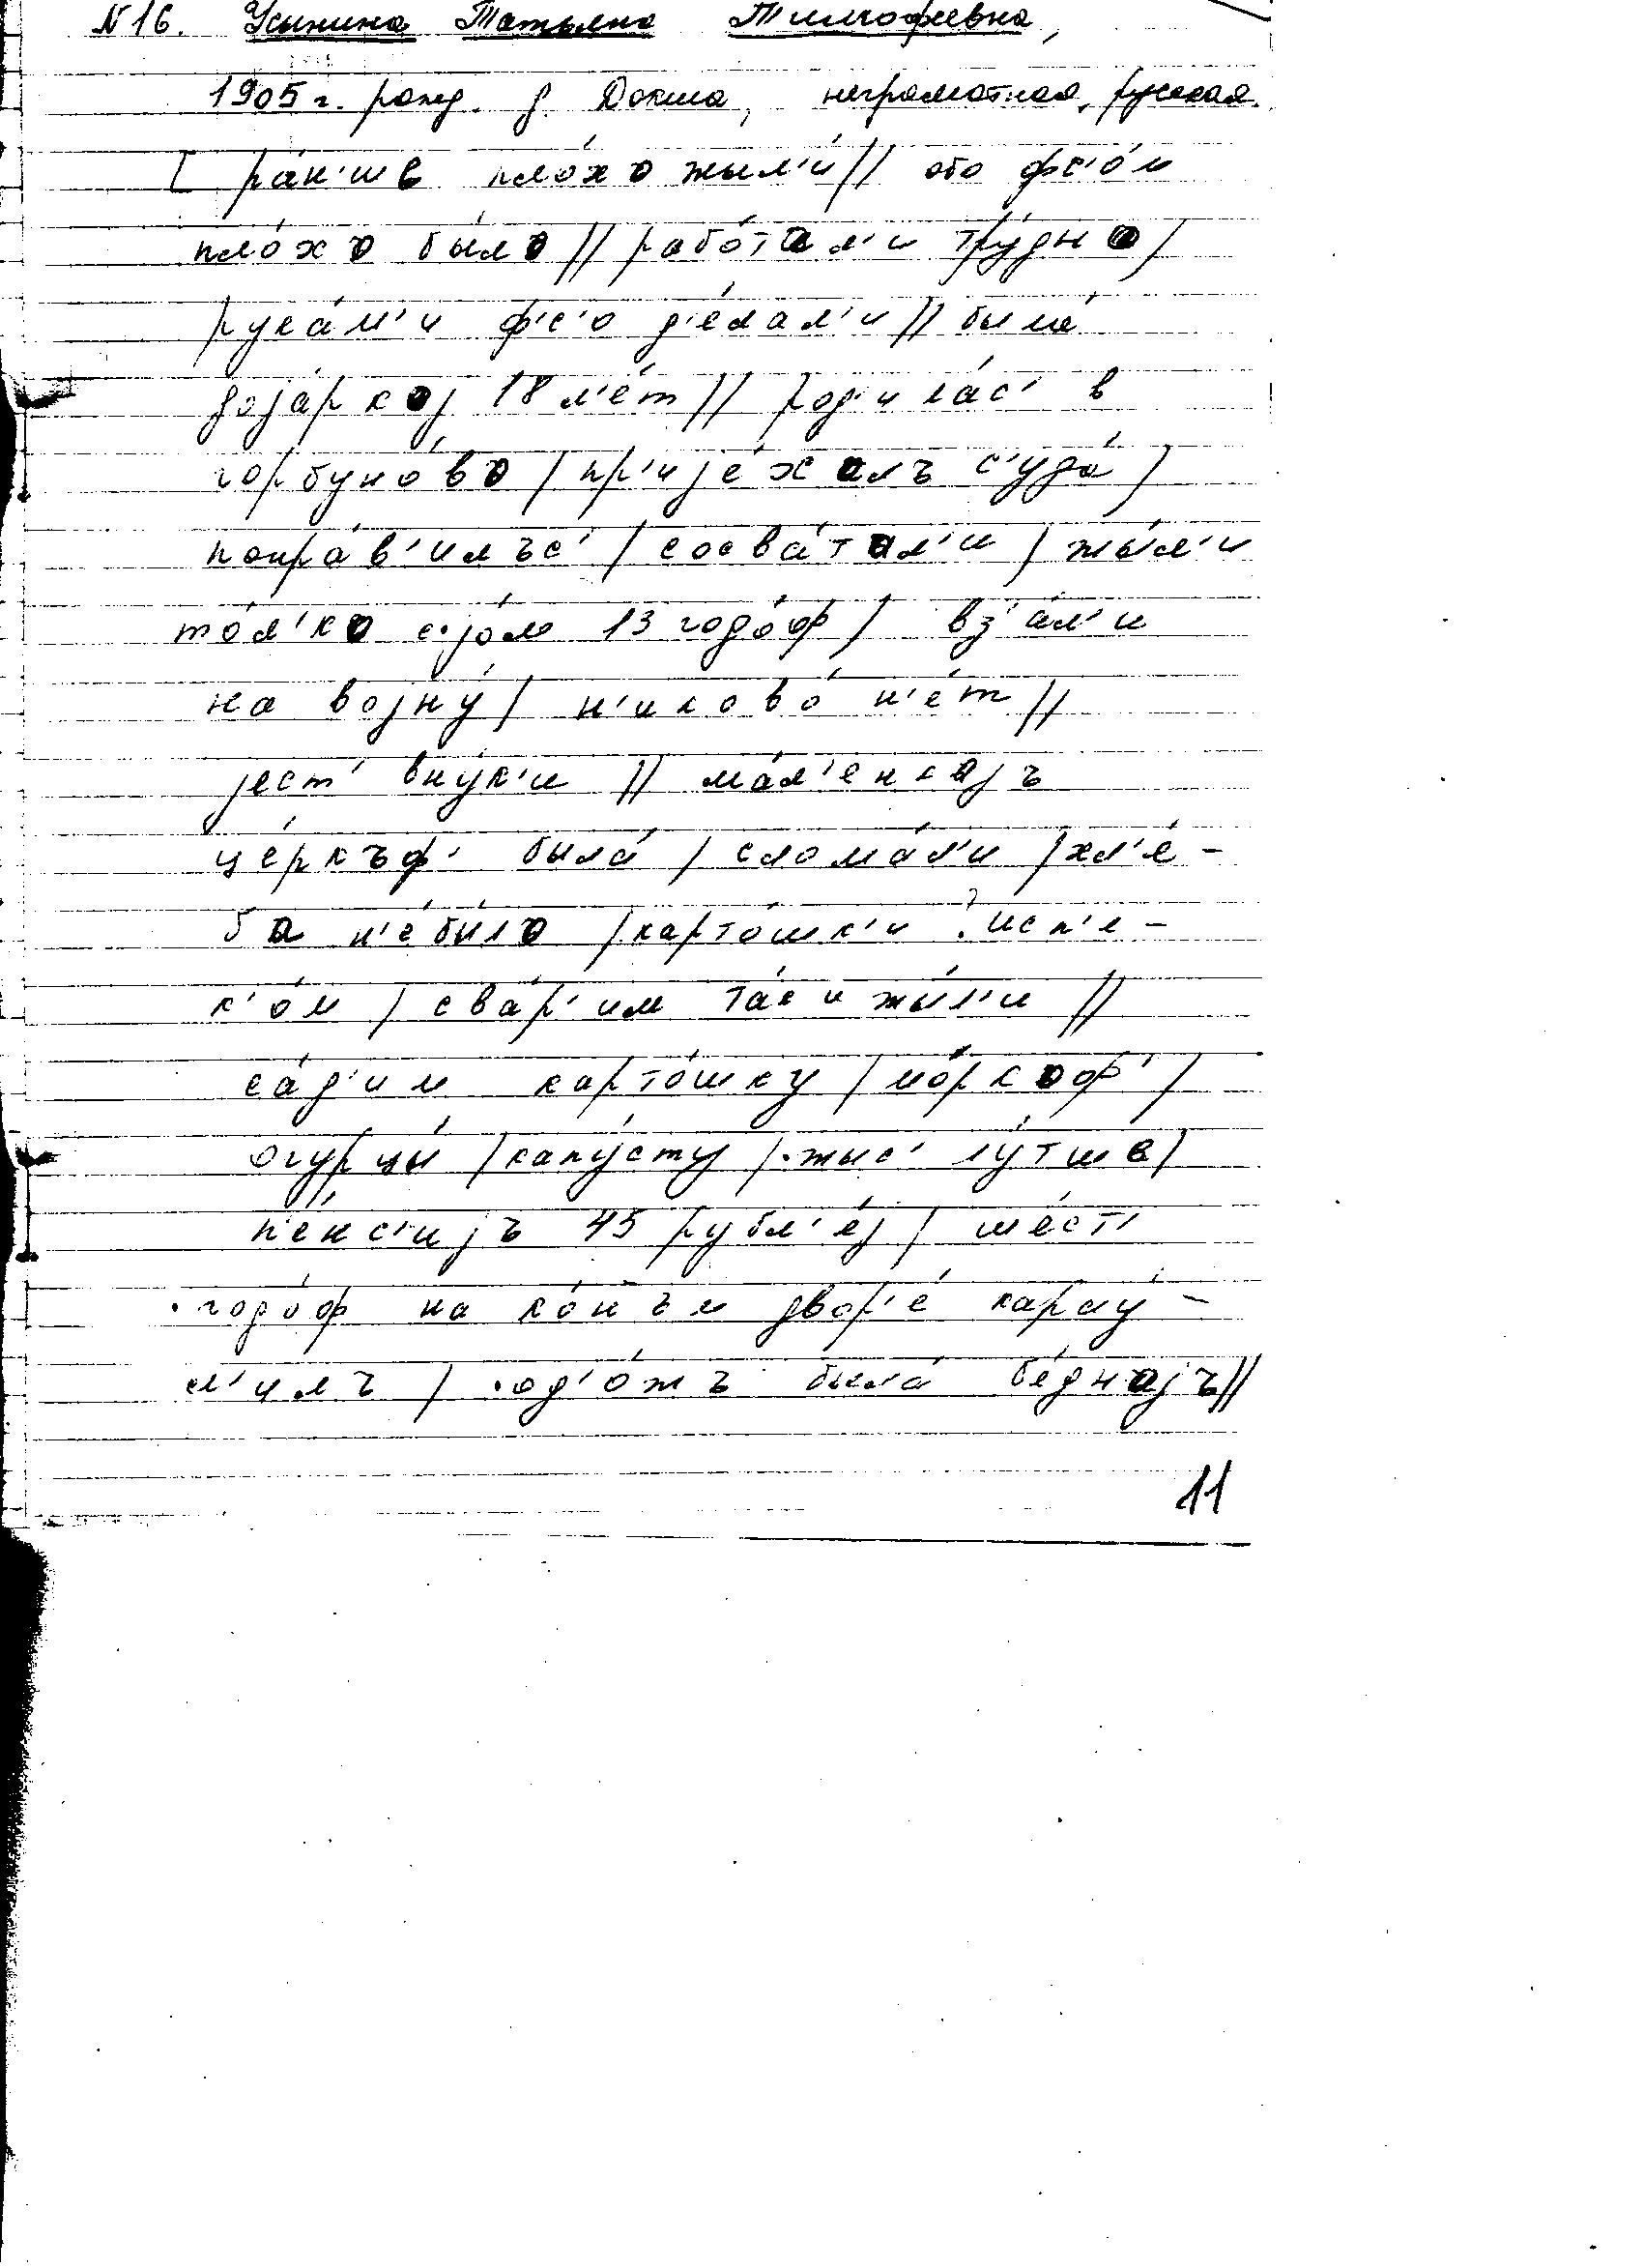 №16. Усынина Татьяна Тимофеевна,
1905 г. рожд. д. Докша, неграмотная, русская.
[ ра́н'шъ пло́хо жыл'и́ // обо фс'о́м
пло́хо бы́ло // рабо́тал'и тру́дно /
рука́м'и ф'с'о д'е́лал'и // была́
доја́ркој 18 л'е́т // род'ила́с' в
горбуно́во / пр'ије́халъ с'уда́ /
понра́в'илъс' / сосва́тал'и / жы́л'и
то́л'ко с јо́м 13 годо́ф / вз'а́л'и
на војну́ / н'иково́ н'е́т //
јест' вну́к'и // ма́л'енкајъ
це́ркъф' была́ / слома́л'и / хл'е́-
ба н'е́было / карто́шк'и ? исп'е-
к'о́м / сва́р'им та́к и жы́л'и //
са́д'им карто́шку / мо́ркоф' /
огурцы́ / капу́сту / жыс' лу́тшъ /
п'е́нс'ијъ 45 рубл'е́ј / ше́ст'
годо́ф на ко́нъм двор'е́ карау́-
л'илъ / од'о́жъ была́ бе́днајъ //
11